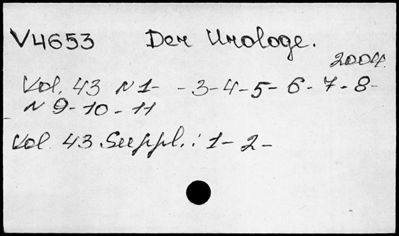 V4653 Der Urologe.
2004.
Vol. 43 N1- -3-4-5-6-7-8-
N9-10-11
Vol 43 Suppl.: 1-2-